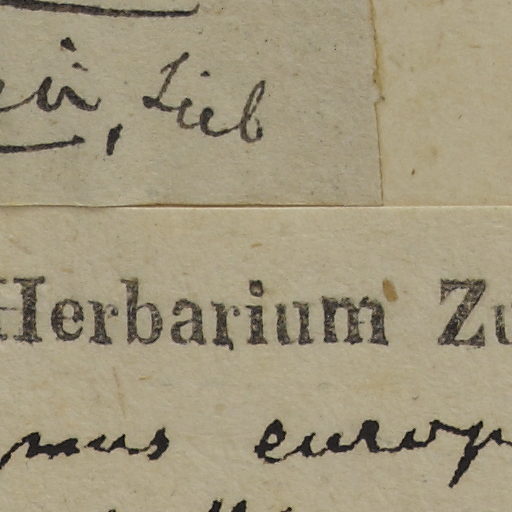 , Lieb
Herbarium Zu
mus europ